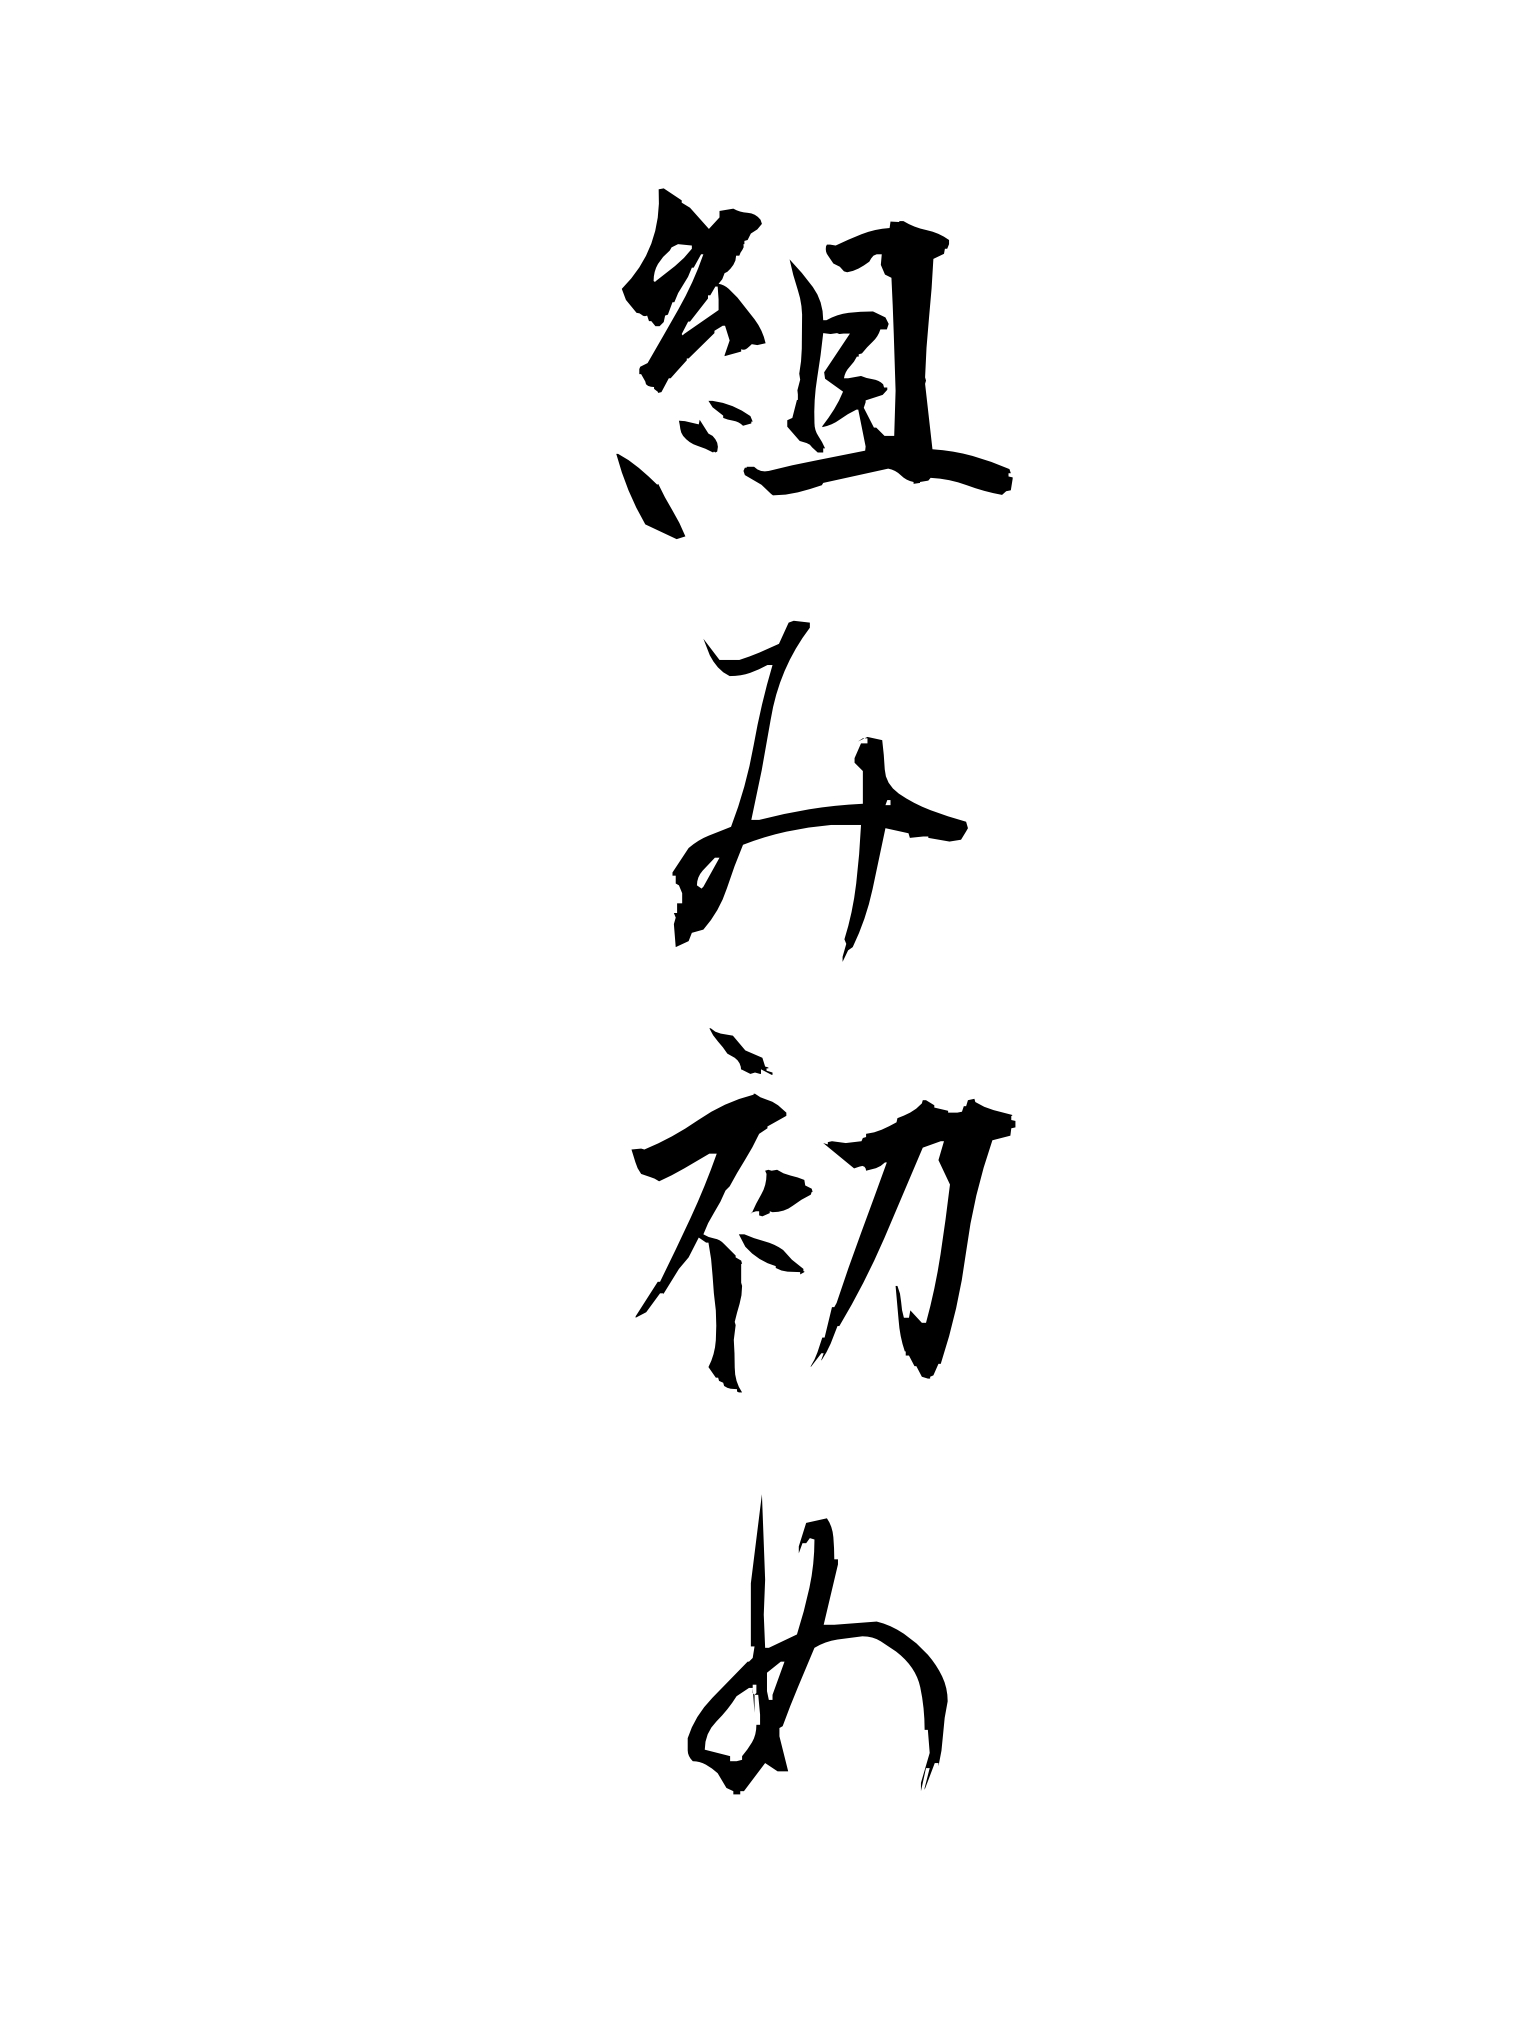 組み初め